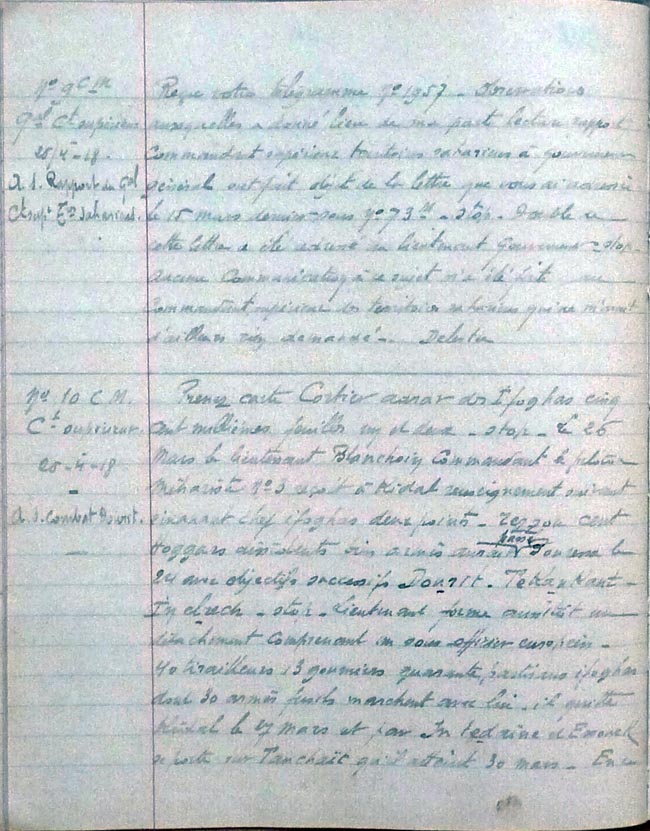 No 9 C.M.
Gal Ct supérieur
25-4-18.
A.S. Rapport du Gal
Ct Supr Tres Sahariens.
Reçu votre télégramme No 1957 - Observations
auxquelles a donné lieu de ma part lecture rapport
Commandant supérieur territoires sahariens à gouverneur
général ont fait objet de la lettre que vous ai adressée
le 15 mars dernier sous No 73 - stop. Double de
cette lettre a été adressé au lieutenant Gouverneur - stop.
Aucune Communication à ce sujet n'a été faite au
Commandant supérieur des territoires sahariens qui ne m'avait
d'ailleurs rien demandé -.
No 10 C.M.
Ct supérieur.
25-4-18
-
A.S. combat Dousit.
-
Prenez carte Cortier adrar des Ifoghas cinq
cent millièmes feuilles un et deux - stop - Le 26
Mars le lieutenant Commandant le peloton
Méhariste No 3 reçoit à Kidal renseignement suivant
émanant chef ifoghas deux points - Rezzou cent
Hoggars dissidents bien armés aurait passé le
24 avec objectifs successifs -
- stop - Lieutenant forme aussitôt un
détachement comprenant un sous-officier européen -
40 tirailleurs 13 goumiers quarante partisans ifoghas
dont 30 armés fusils marchent avec lui - il quitte
Kidal le 27 Mars et par In Tedaine et Emorek
se porte sur Tanchaïc qu'il atteint 30 mars - En ce